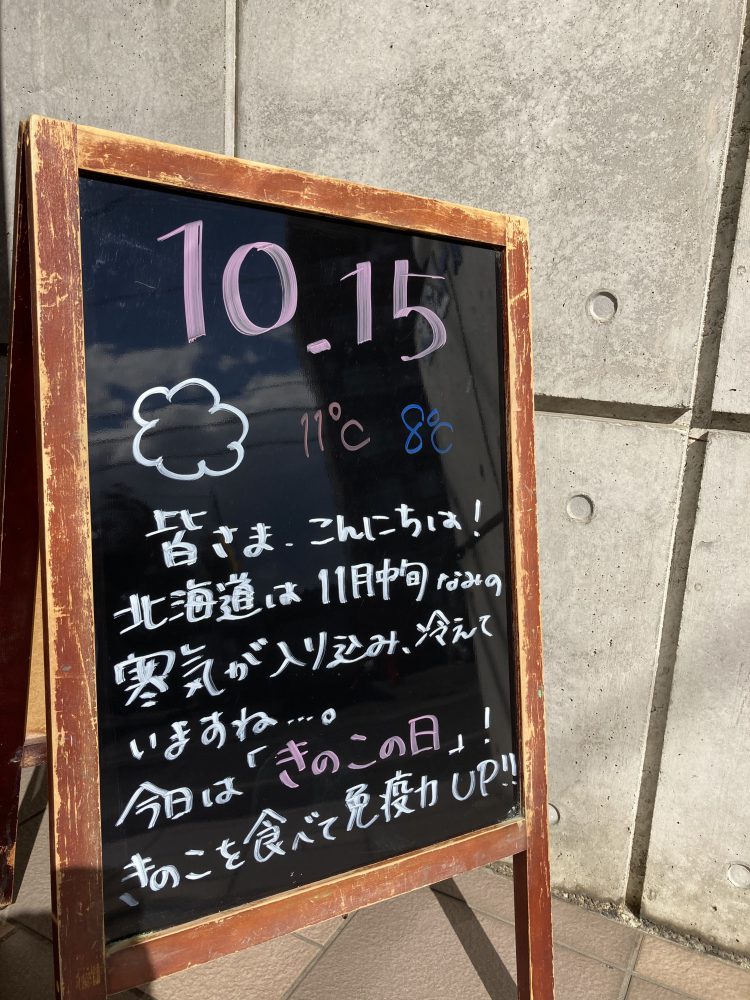 10.15
11℃ 8℃
皆さま、こんにちは！
北海道は11月中旬なみの
寒気が入り込み、冷えて
いますね…。
今日は「きのこの日」！
きのこを食べて免疫力UP!!